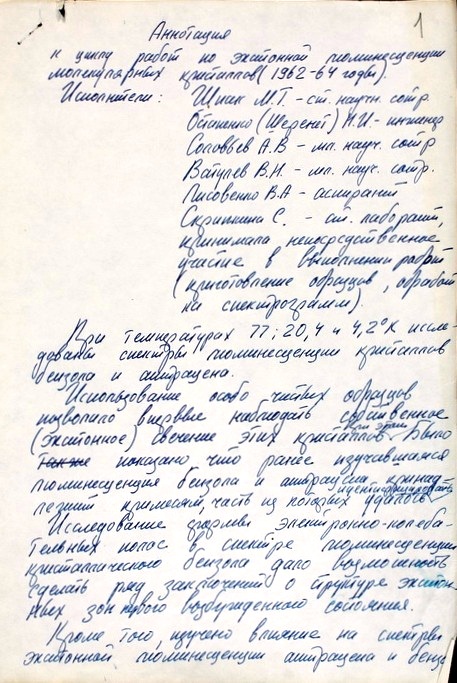 1
Аннотация
к циклу работ по экситонной люминесценции
молекулярных кристаллов (1962-64 годы).
Исполнители: Шпак М.Т. - ст. научн. сотр.
Остапенко (Шеремет) Н.И. - инженер
Соловьев А.В - мл. науч. сотр
Ватулев В.Н. - мл. науч. сотр.
Лисовенко В.А - аспирант
Скрипкина С. - ст. лаборант,
принимала непосредственное
участие в выполнении работ
(приготовление образцов, обработ
на спектрограмм).
При температурах 77; 20,4 и 4,2°К иссле-
дованы спектры люминесценции кристаллов
бензола и антрацена.
Использование особо чистых образцов
позволило впервые наблюдать собственное
(экситонное) свечение этих кристаллов. При этом было
показано что ранее изучавшаяся
люминесценция бензола и антрацена принад-
лежит примесям, часть из которых удалось идентифицировать
Исследование формы электронно-колеба-
тельных полос в спектре люминесценции
кристаллического бензола дало возможность
сделать ряд заключений о структуре экситон-
ных зон первого возбужденного состояния.
Кроме того, изучено влияние на спектры
экситонной люминесценции антрацена и бенз